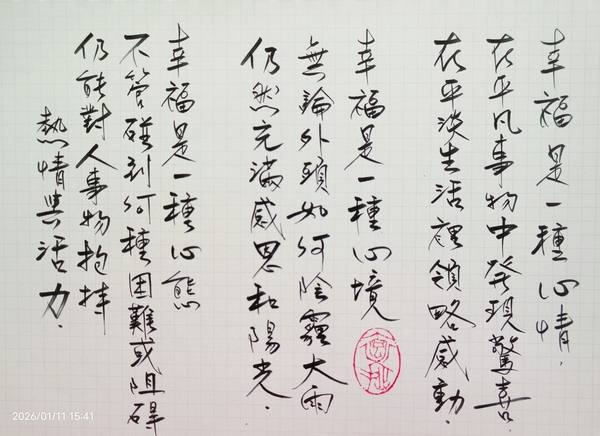 幸福是一種心情，
在平凡事物中發現驚喜．
在平淡生活裡領略感動．
幸福是一種心境
無論外頭如何陰霾大雨
仍然充滿感恩和陽光．
幸福是一種心態
不管碰到何種困難或阻碍
仍能對人事物抱持
熱情與活力．
2026/01/11 15:41